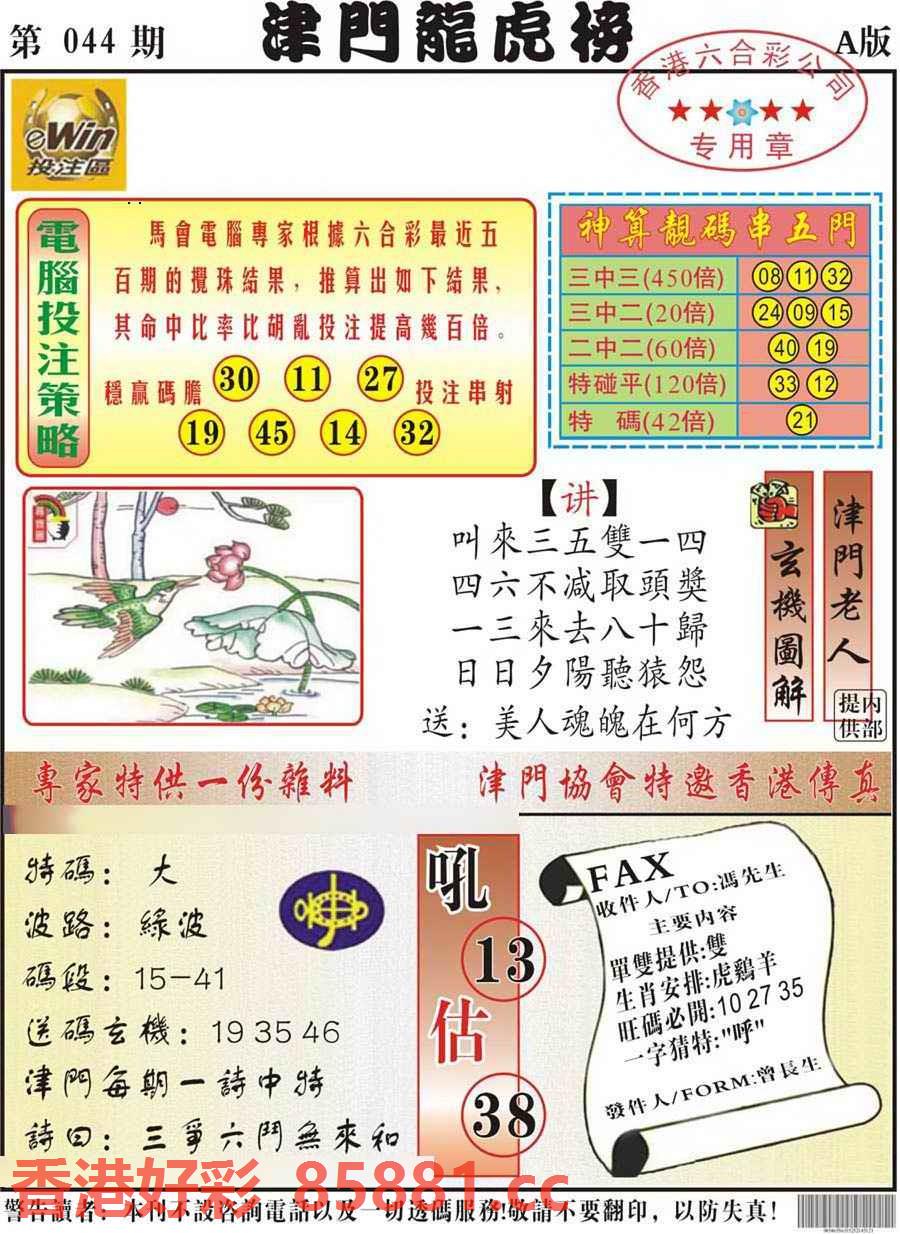 第 044 期
津門龍虎榜
A版
香港六合彩公司
专用章
eWin
投注區
電腦投注策略
馬會電腦專家根據六合彩最近五
百期的攪珠結果，推算出如下結果，
其命中比率比胡亂投注提高幾百倍。
穩贏碼膽 30 11 27 投注串射
19 45 14 32
神算靚碼串五門
三中三(450倍) 08 11 32
三中二(20倍) 24 09 15
二中二(60倍) 40 19
特碰平(120倍) 33 12
特 碼(42倍) 21
【讲】
叫來三五雙一四
四六不减取頭獎
一三來去八十歸
日日夕陽聽猿怨
送：美人魂魄在何方
玄機圖解
津門老人
提内
供部
專家特供一份雜料
津門協會特邀香港傳真
特碼：大
波路：綠波
碼段：15-41
送碼玄機：19 35 46
津門每期一詩中特
詩曰：三爭六鬥無來和
吼
13
估
38
FAX
收件人/TO:馮先生
主要内容
單雙提供:雙
生肖安排:虎鷄羊
旺碼必開:10 27 35
一字猜特:"呼"
發件人/FORM:曾長生
香港好彩 85881.cc
警告讀者：本刊不設咨詢電話以及一切透碼服務!敬請不要翻印，以防失真!